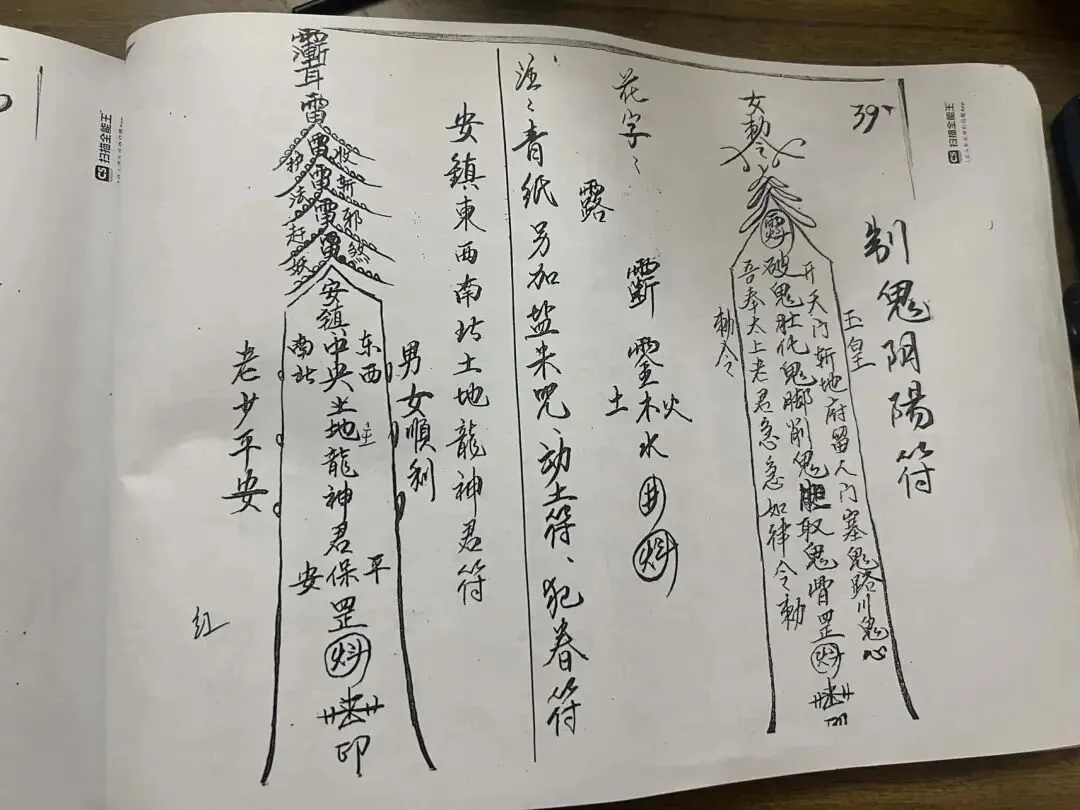 39
扫描全能王
CS
制鬼阴陽符
女勅令
玉皇
开天门斩地府留人门塞鬼路川鬼心
破鬼肚仛鬼脚削鬼胆取鬼骨罡
印
吾奉太上老君急急如律令勅
勅令
花字:
露
木火
土
水
注:青纸另加盐米咒、动土符、犯眷符
安鎮東西南北土地龍神君符
雷
雷
雷
雷
雷
收斩邪煞
护法赶妖
安鎮中央土地龍神君保罡
主
东西
南北
平
安
印
男女順利
老少平安
红
扫描全能王
CS